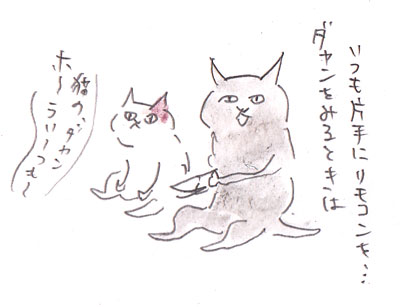 いつも片手にリモコンを、、、
ダヤンをみるときは
猫のダヤン